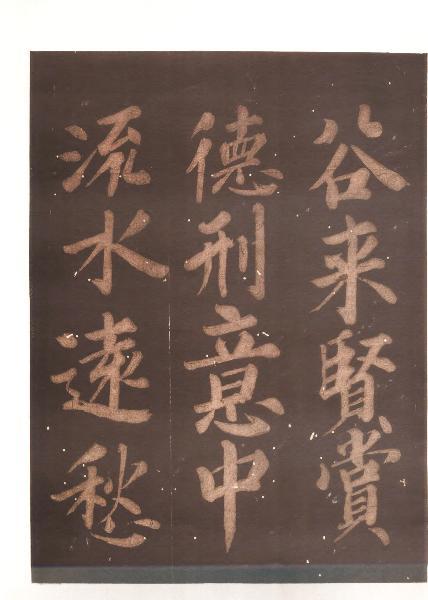 谷来賢賞
德刑意中
流水遠愁